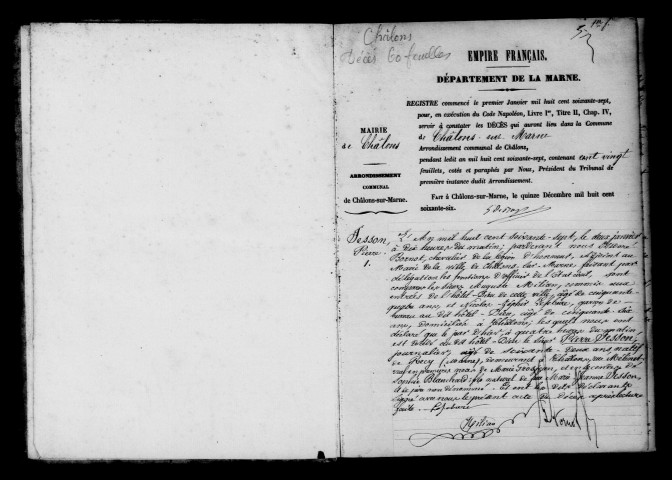 Châlons
Décès 60 feuilles
EMPIRE FRANÇAIS.
DÉPARTEMENT DE LA MARNE.
REGISTRE commencé le premier Janvier mil huit cent soixante-sept,
pour, en exécution du Code Napoléon, Livre Ier, Titre II, Chap. IV,
servir à constater les DÉCÈS qui auront lieu dans la Commune
de Châlons sur Marne
Arrondissement communal de Châlons,
pendant ledit an mil huit cent soixante-sept, contenant cent vingt
feuillets, cotés et paraphés par Nous, Président du Tribunal de
première instance dudit Arrondissement.
FAIT à Châlons-sur-Marne, le quinze Décembre mil huit cent
soixante-six.
MAIRIE
de Châlons
ARRONDISSEMENT
COMMUNAL
de Châlons-sur-Marne.
Jesson
Pierre
1.
L'An mil huit cent soixante-sept, le deux janvier
à dix heures du matin; pardevant nous
chevalier de la légion d'honneur, Adjoint au
Maire de la ville de Châlons, sur Marne faisant par
délégation les fonctions d'officier de l'Etat civil, sont
comparus les sieurs Auguste Milian, commis aux
entrées de l'hôtel-Dieu de cette ville, âgé de cinquante
quatre ans, et Nicolas Zéphir Lefebure, garçon de
bureau au dit hôtel-Dieu, âgé de cinquante six
ans, domiciliés à Châlons, lesquels nous ont
déclaré que le jour d'hier, à quatre heures du matin
est décédé au dit hôtel-Dieu le sieur Pierre Jesson,
journalier, âgé de soixante-deux ans, natif
de Recy (Marne), demeurant à Châlons, rue
veuf en premières noces de Marie et en secondes de
Sophie Blanchard, fils naturel de feue Marie Jeanne Jesson
et de père non dénommé. Et ont les dits déclarants
signé avec nous le présent acte de décès après lecture
faite. Lefebure
Milian